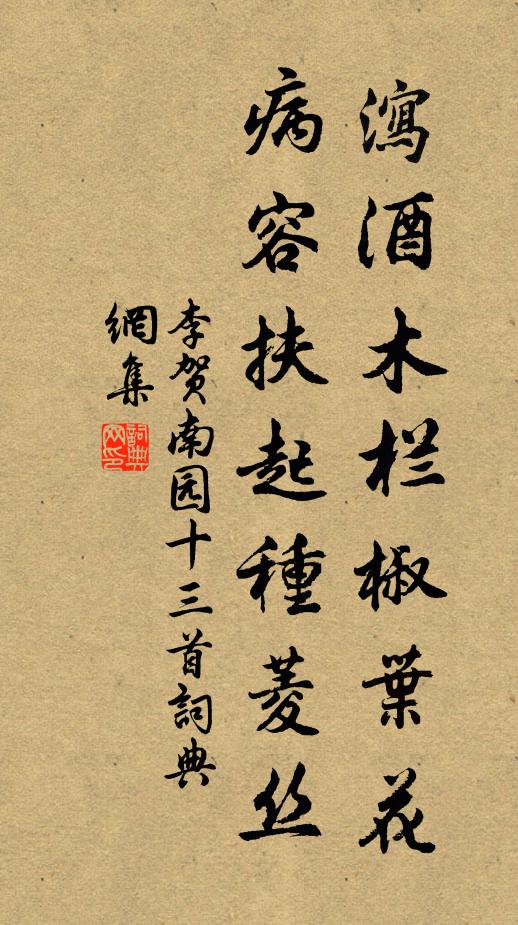 瀉酒木栏椒葉花
病容扶起種菱丝
李贺南园十三首詞典
網集
詞典网印